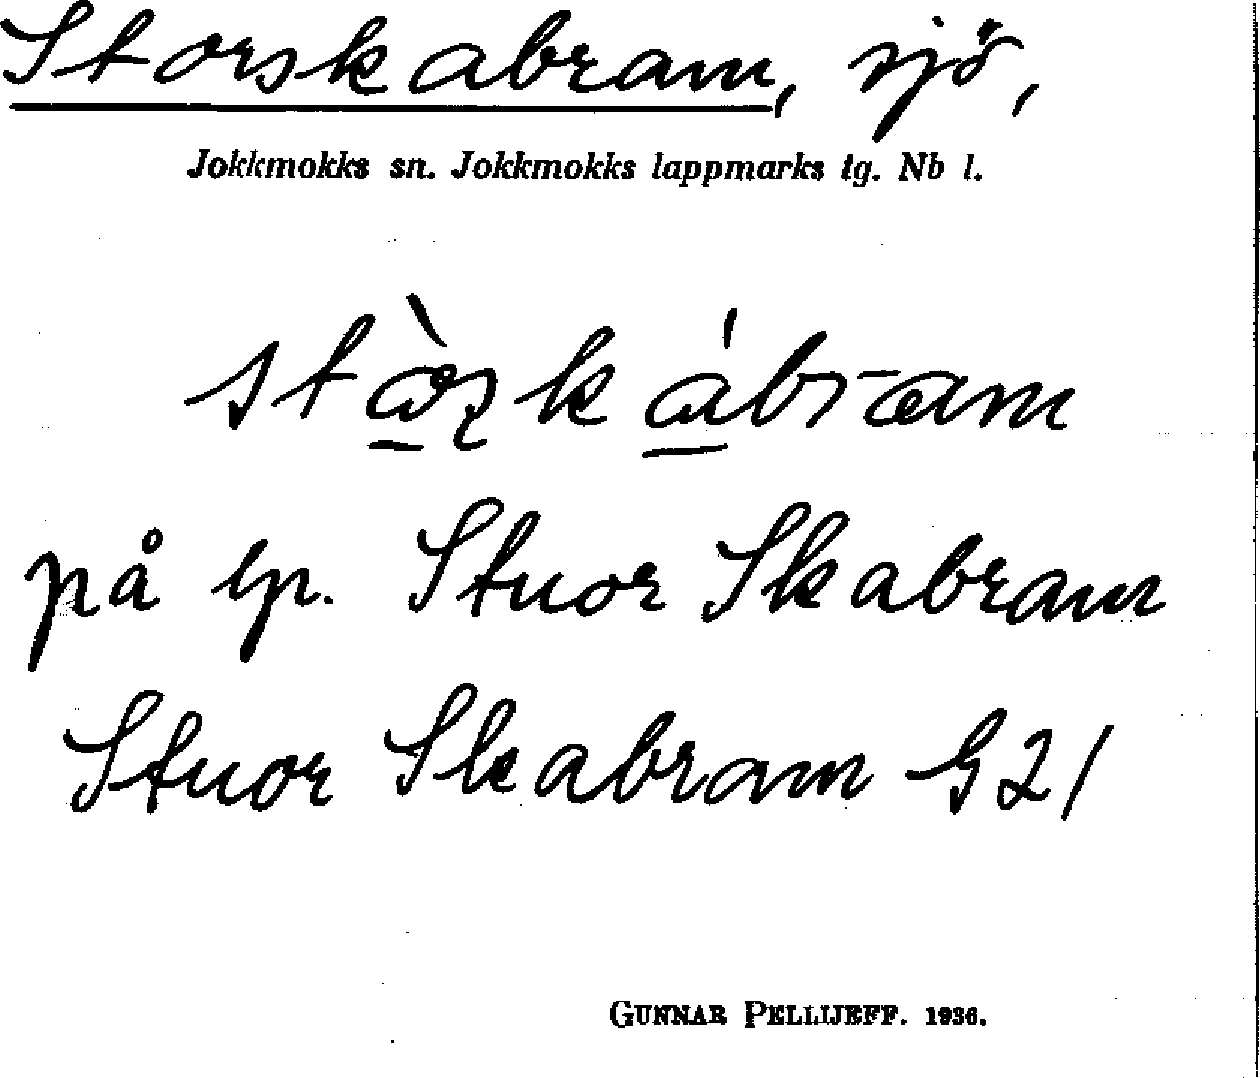 Storskabram, sjö,
Jokkmokks sn. Jokkmokks lappmarks tg. Nb l.
på lp. Stuor Skabram
Stuor Skabram G21
GUNNAR PELLIJEFF. 1936.